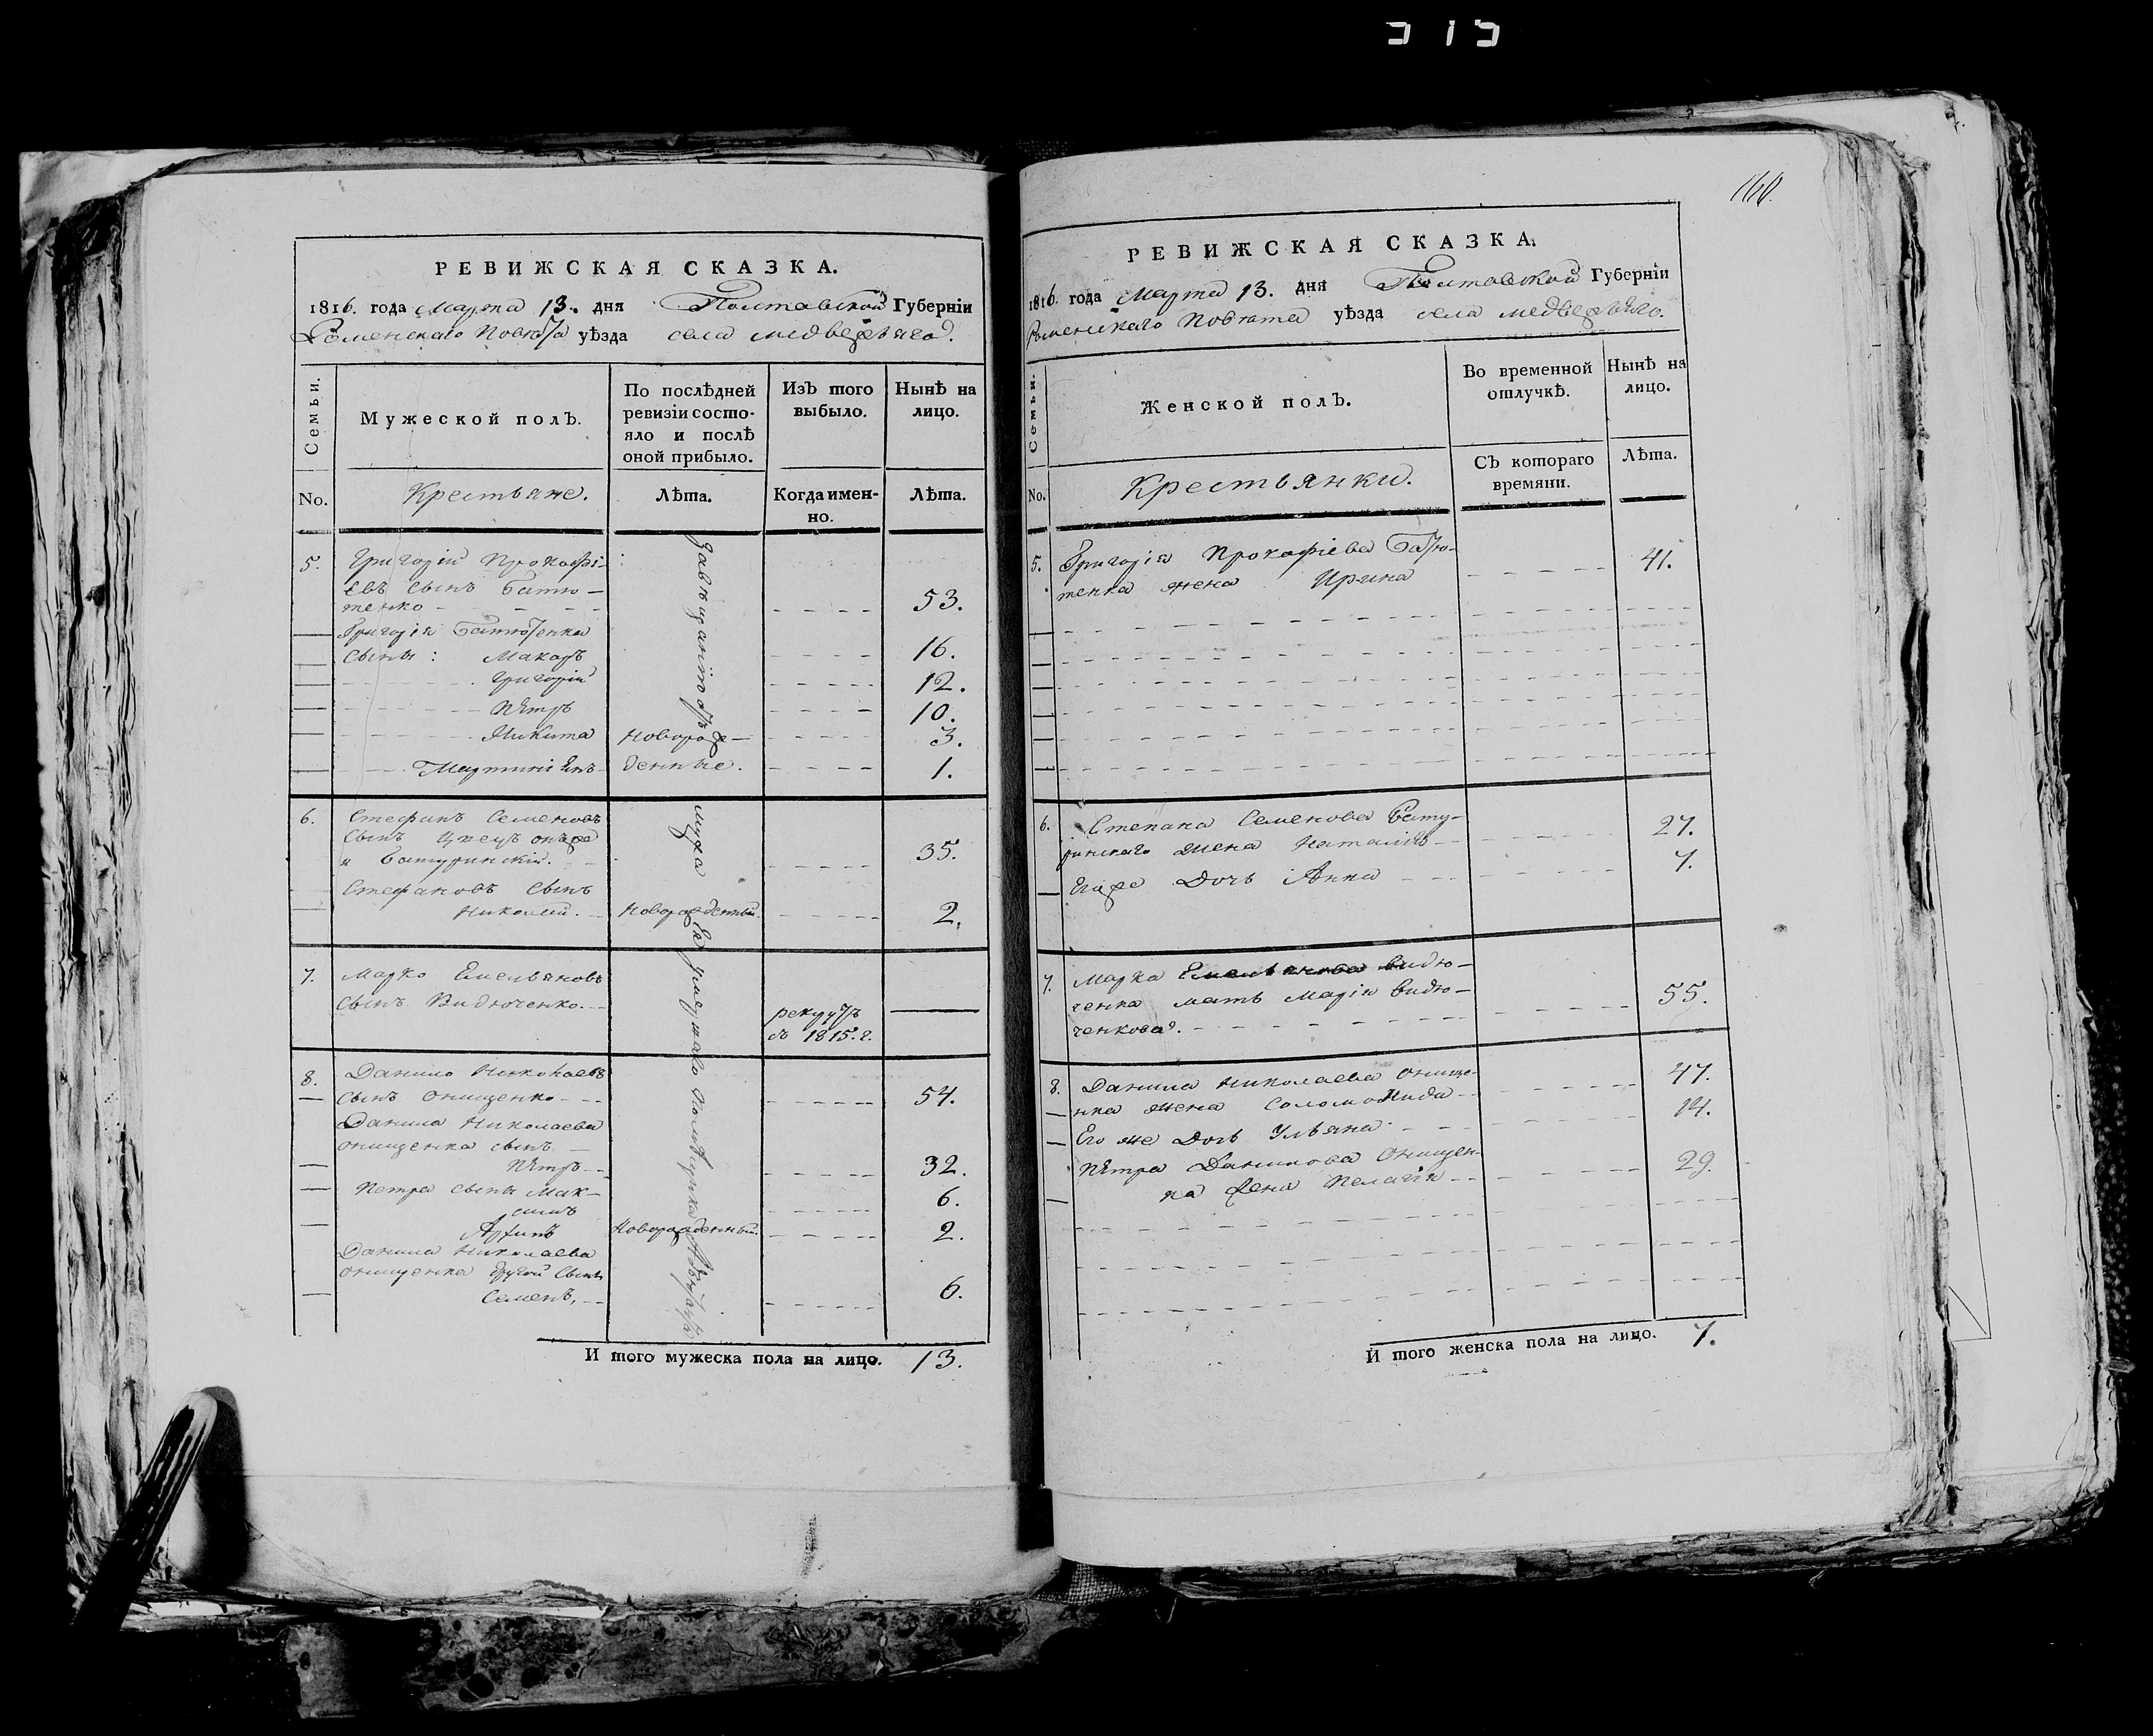 515
РЕВИЖСКАЯ СКАЗКА.
1816. года Марта 13. дня Полтавской Губерніи
Роменскаго Повѣта уѣзда села Медвежяго.
Семьи.
Мужеской полЪ.
По послѣдней
ревизіи состо-
яло и послѣ
оной прибыло.
ИзЪ того
выбыло.
НынѢ на
лицо.
No.
Крестьяне.
Лѣта.
Когда имен-
но.
Лѣта.
5. Григорій Прокофі-
евъ сынъ Батю-
тенко 53.
Григорія Батютенка
сыны: Макаръ 16.
Григорій 12.
Пѣтръ 10.
Никита Новорож- 3.
Мартиніянъ денные. 1.
6. Стефанъ Семеновъ
сынъ
и Батуринскій. 35.
Стефановъ сынъ
Николай. Новорожденный. 2.
7. Марко Емельяновъ
сынъ Видюченко.
рекрутъ
съ 1815. г.
8. Данило Николаевъ
сынъ Онищенко 54.
Данила Николаева
Онищенка сынъ
Пѣтръ 32.
Петра сыны Мак-
симъ 6.
Архипъ Новорожденный. 2.
Данила Николаева
Онищенка другой сынъ
Семенъ, 6.
И того мужеска пола на лицо. 13.
160.
РЕВИЖСКАЯ СКАЗКА.
1816. года Марта 13. дня Полтавской Губерніи
Роменскаго Повѣта уѣзда села Медвежяго.
Семьи.
Женской полЪ.
Во временной
отлучкѢ.
НынѢ на
лицо.
No.
Крестьянки.
СЪ котораго
времяни.
Лѣта.
5. Григорія Прокофіева Батю-
тенка жена Ирина 41.
6. Степана Семенова Бату-
ринскаго жена Наталія 27.
Егоже Дочь Анна 7.
7. Марка Емельянова Видю-
ченка мать Марія Видю-
ченкова. 55.
8. Данила Николаева Онище-
нка жена Соломонида 47.
Его же Дочь Ульяна 14.
Пѣтра Данилова Онищен-
ка жена Пелагія 29.
И того женска пола на лицо. 7.